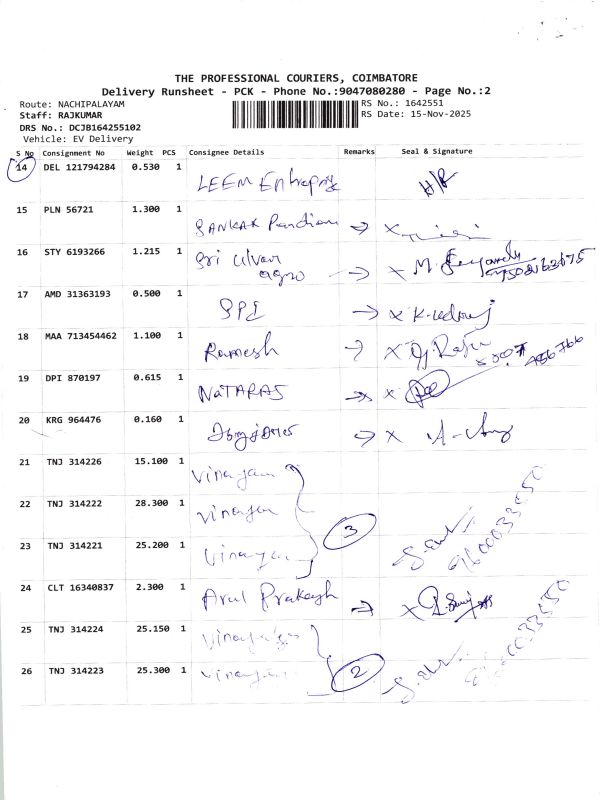 THE PROFESSIONAL COURIERS, COIMBATORE
Delivery Runsheet - PCK - Phone No.:9047080280 - Page No.:2
Route: NACHIPALAYAM
RS No.: 1642551
Staff: RAJKUMAR
RS Date: 15-Nov-2025
DRS No.: DCJB164255102
Vehicle: EV Delivery
S No Consignment No Weight PCS Consignee Details Remarks Seal & Signature
14 DEL 121794284 0.530 1 LEEM Enterprise H/R
15 PLN 56721 1.300 1 SANKAR Pandian → x
16 STY 6193266 1.215 1 Sri Ulvar agro → x M.
17 AMD 31363193 0.500 1 SPI → x
18 MAA 713454462 1.100 1 Ramesh → x
19 DPI 870197 0.615 1 NATARAS → x
20 KRG 964476 0.160 1 → x
21 TNJ 314226 15.100 1 Vinayan
22 TNJ 314222 28.300 1 Vinayan 3
23 TNJ 314221 25.200 1 Vinayan 9600033050
24 CLT 16340837 2.300 1 Arul Prakash → x
25 TNJ 314224 25.150 1
26 TNJ 314223 25.300 1 2